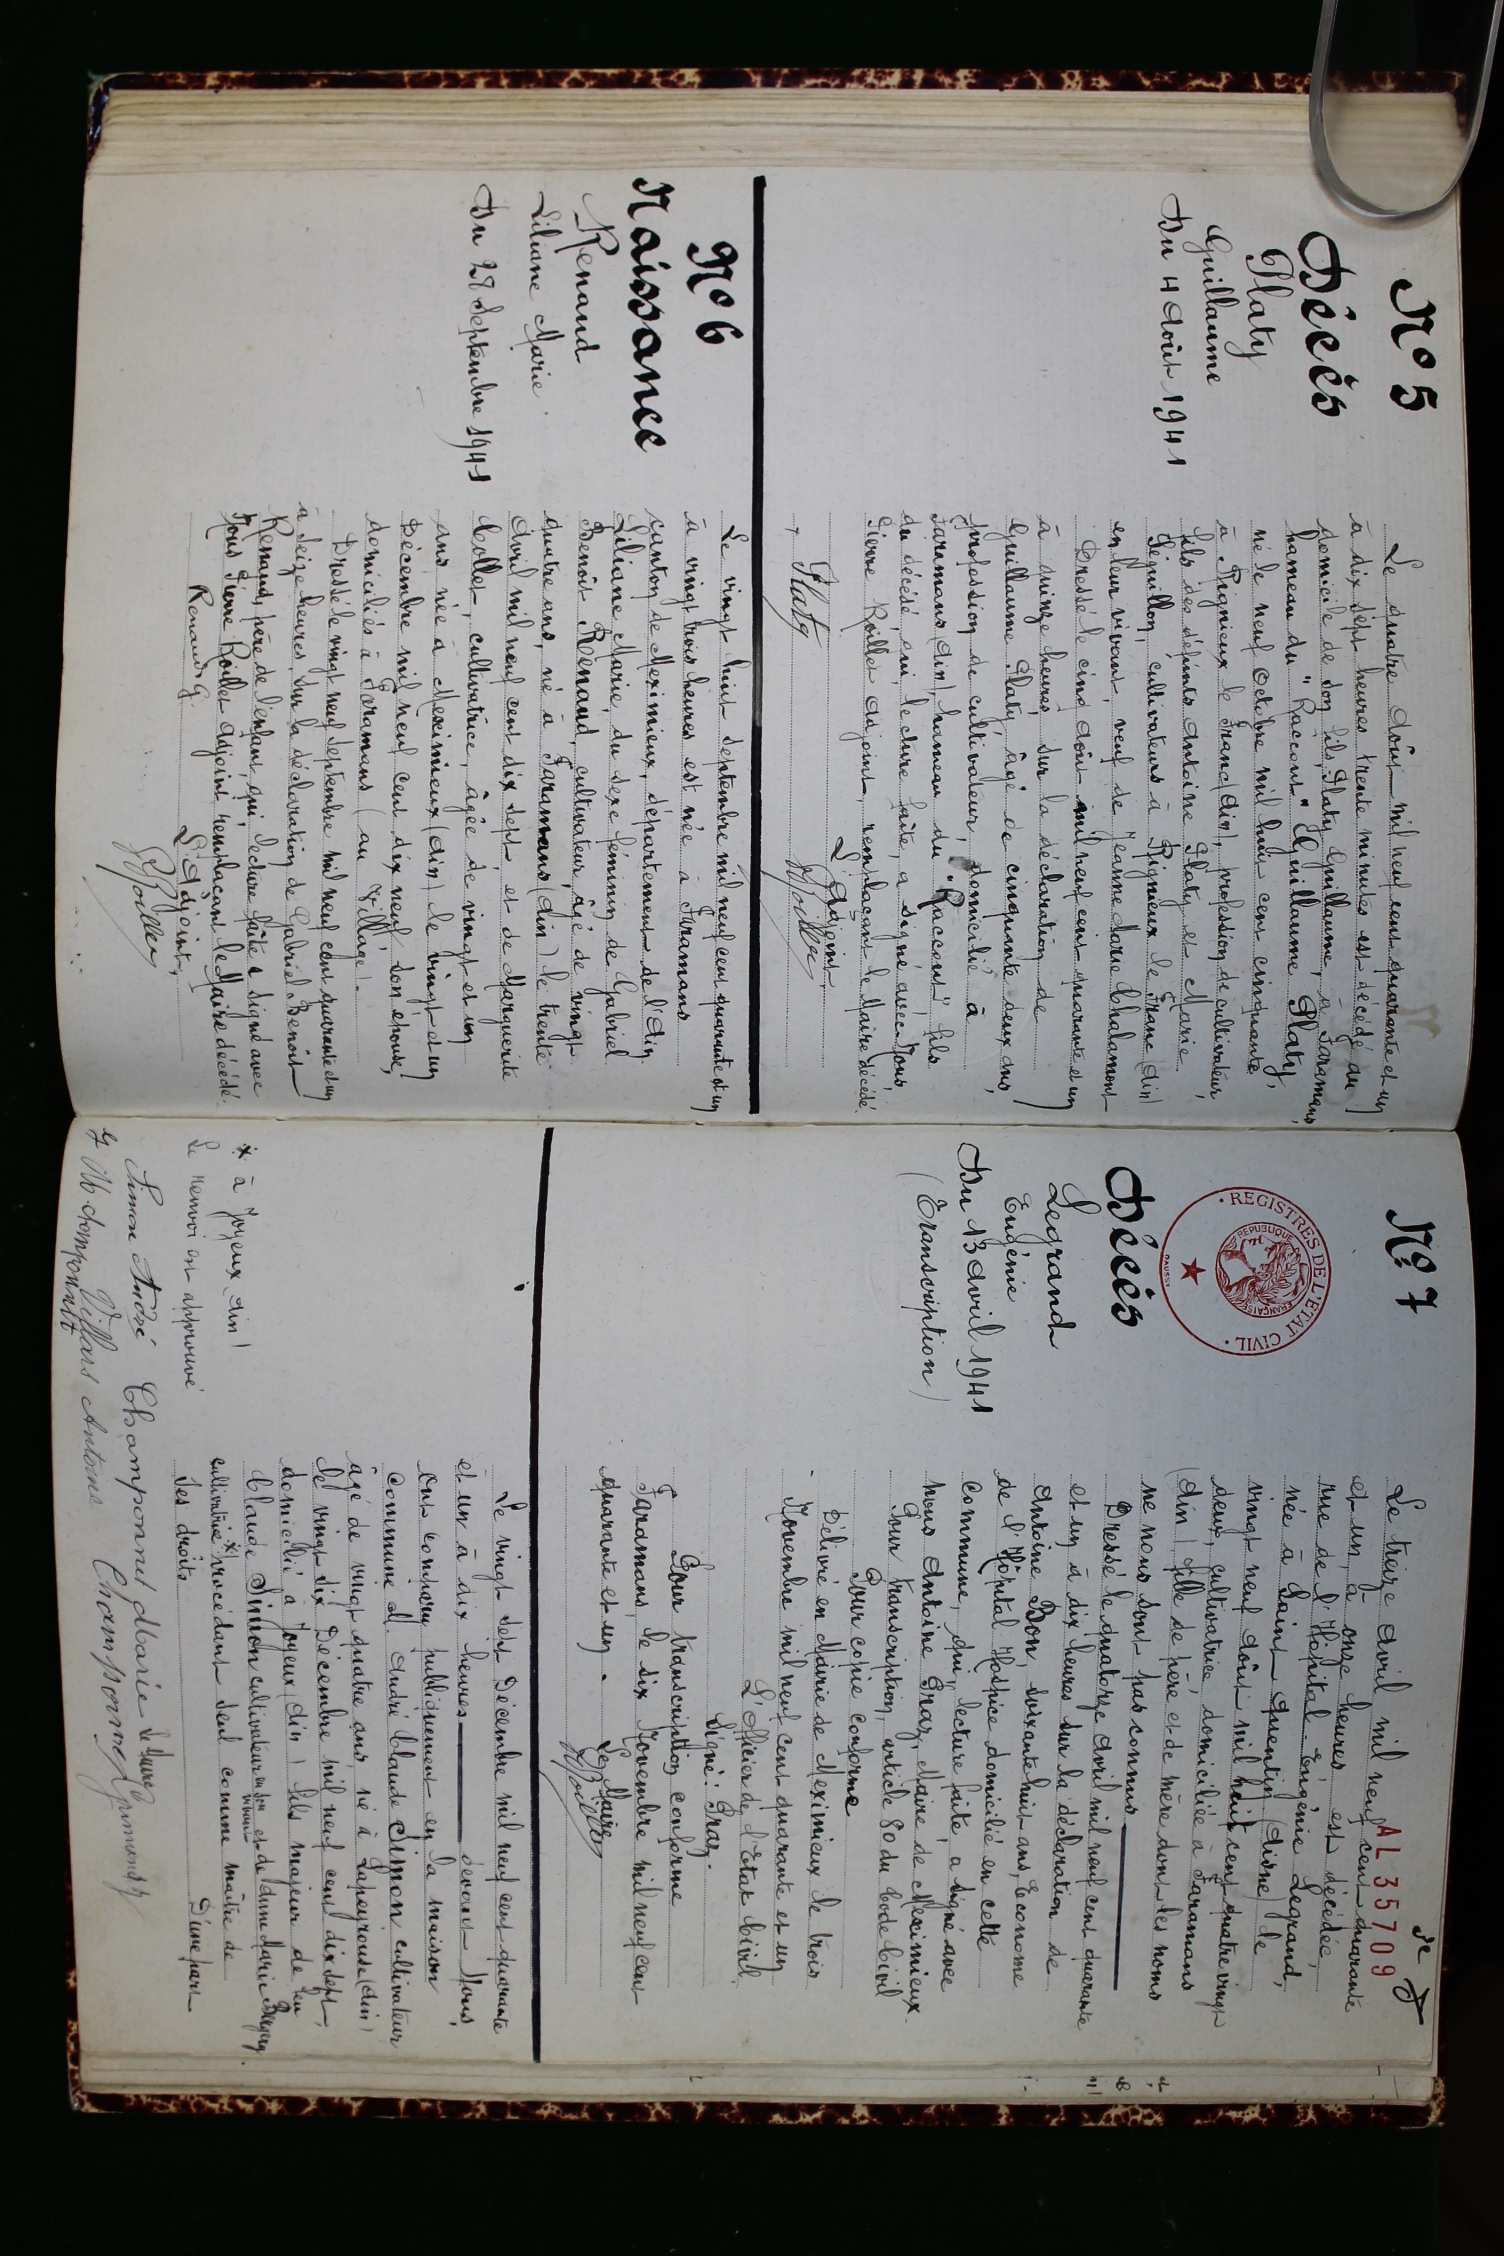 Nº 5
Décès
Platy
Guillaume
Du 4 Août 1941
Le quatre Août mil neuf cent quarante et un
à dix sept heures trente minutes est décédé au
domicile de son fils, Platy Guillaume, à Faramans,
hameau du "Raccout" Guillaume Platy,
né le neuf Octobre mil huit cent cinquante
à Rignieux le Franc (Ain), profession de cultivateur,
fils des défunts Antoine Platy et Marie
Séguillon, cultivateurs à Rignieux le Franc (Ain)
en leur vivant, veuf de Jeanne Marie Chalamont
Dressé le cinq Août mil neuf cent quarante et un
à quinze heures, sur la déclaration de
Guillaume Platy, âgé de cinquante deux ans,
profession de cultivateur, domicilié à
Faramans (Ain), hameau du "Raccout" fils
du décédé, qui, lecture faite, a signé avec Nous,
Pierre Roillet Adjoint, remplaçant le Maire décédé.
L'Adjoint,
Platy
PRoillet
Nº 6
Naissance
Renaud
Liliane Marie.
Du 28 Septembre 1941
Le vingt huit Septembre mil neuf cent quarante et un
à vingt trois heures est née à Faramans
canton de Meximieux, département de l'Ain
Liliane Marie, du sexe féminin de Gabriel
Benoît Renaud, cultivateur, âgé de vingt
quatre ans, né à Faramans (Ain) le trente
Avril mil neuf cent dix sept, et de Marguerite
Collet, cultivatrice, âgée de vingt et un
ans née à Meximieux (Ain) le vingt et un
Décembre mil neuf cent dix neuf, son épouse,
domiciliés à Faramans (au Village).
Dressé le vingt neuf Septembre mil neuf cent quarante et un
à seize heures, sur la déclaration de Gabriel Benoît
Renaud, père de l'enfant, qui, lecture faite a signé avec
Nous Pierre Roillet Adjoint remplaçant le Maire décédé.
Renaud G.
L'Adjoint,
PRoillet
Nº 7
AL 35709
REGISTRES DE L'ETAT CIVIL
REPUBLIQUE FRANÇAISE
DAUSSY
Décès
Legrand
Eugénie
Du 13 Avril 1941
(Transcription)
Le treize Avril mil neuf cent quarante
et un, à onze heures est décédée,
rue de l'Hôpital Eugénie Legrand,
née à Saint Quentin (Aisne) le
vingt neuf Août mil huit cent quatre vingt
deux, cultivatrice, domiciliée à Faramans
(Ain) fille de père et de mère dont les noms
ne nous sont pas connus
Dressé le quatorze Avril mil neuf cent quarante
et un à dix heures sur la déclaration de
Antoine Bon, soixante huit ans, Econome
de l'Hôpital Hospice domicilié en cette
commune, qui, lecture faite, a signé avec
nous Antoine Praz, Maire de Meximieux.
Pour transcription, article 80 du Code Civil
Pour copie conforme
Délivré en Mairie de Meximieux le trois
Novembre mil neuf cent quarante et un
L'Officier de l'Etat Civil,
Signé: Praz.
Pour transcription conforme
Faramans, le six Novembre mil neuf cent
quarante et un.
Le Maire,
PRoillet
Le vingt sept Décembre mil neuf cent quarante
et un à dix heures devant Nous,
ont comparu publiquement en la maison
Commune M. André Claude Simon cultivateur
âgé de vingt quatre ans, né à Lapeyrouse (Ain)
le vingt six Décembre mil neuf cent dix sept,
domicilié à Joyeux (Ain) fils majeur de feu
Claude Simon cultivateur en son vivant et de dame Marie
cultivatrice* procédant seul comme maître de
ses droits D'une part
* à Joyeux (Ain)
Le renvoi est approuvé
Simon André Champonnet Marie
Villars Antoine